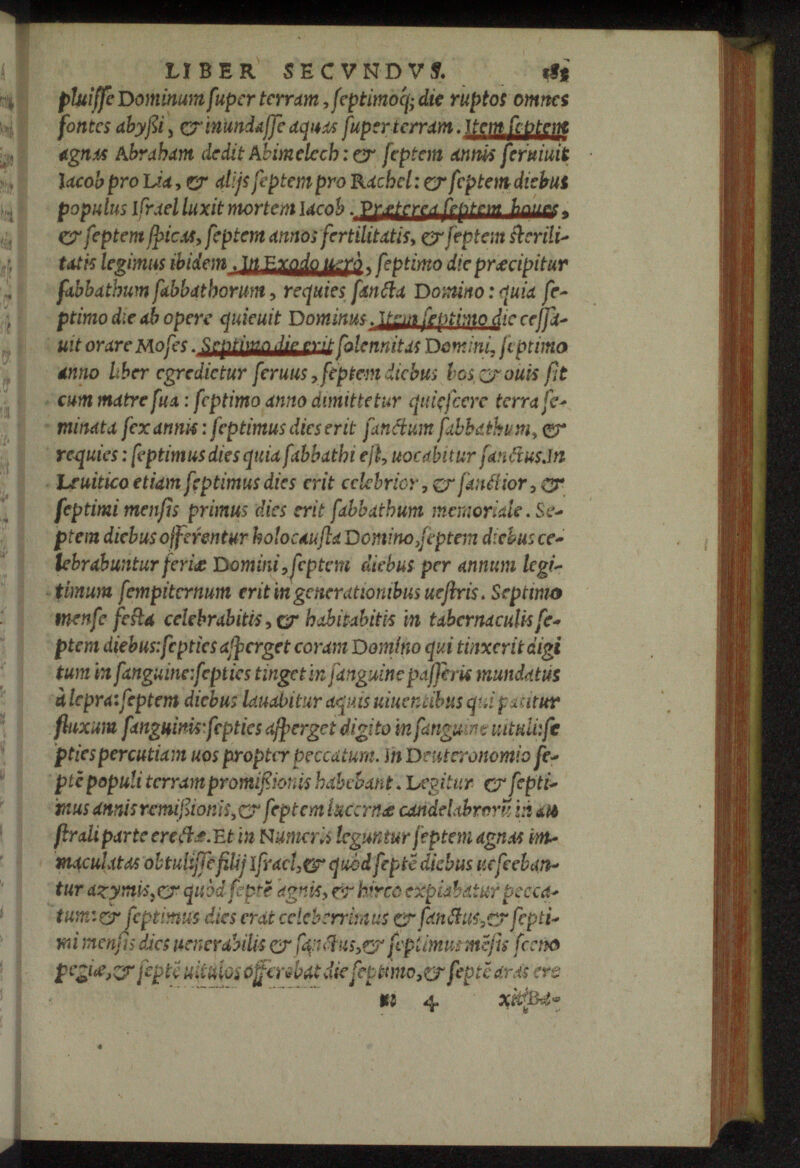 LIBER SECVNDVS.
pluiſſe Dominum ſuper terram, ſeptimoq́; die ruptos omnes
fontes abyßi, & inundaſſe aquas ſuper terram. Item ſeptem
agnas Abraham dedit Abimelech: & ſeptem annis ſeruiuit
Iacob pro Lia, & alijs ſeptem pro Rachel: & ſeptem diebus
populus Iſrael luxit mortem Iacob. Præterea ſeptem boues,
& ſeptem ſpicas, ſeptem annos fertilitatis, & ſeptem ſterili-
tatis legimus ibidem. In Exodo uerò, ſeptimo die præcipitur
ſabbathum ſabbathorum, requies ſancta Domino: quia ſe-
ptimo die ab opere quieuit Dominus. Item ſeptimo die ceſſa-
uit orare Moſes. Septimo die erit ſolennitas Domini, ſeptimo
anno liber egredietur ſeruus, ſeptem diebus bos & ouis ſit
cum matre ſua: ſeptimo anno dimittetur quieſcere terra ſe-
minata ſex annis: ſeptimus dies erit ſanctum ſabbathum, &
requies: ſeptimus dies quia ſabbathi eſt, uocabitur ſanctus. In
Leuitico etiam ſeptimus dies erit celebrior, & ſanctior, &
ſeptimi menſis primus dies erit ſabbathum memoriale. Se-
ptem diebus offerentur holocauſta Domino, ſeptem diebus ce-
lebrabuntur feriæ Domini, ſeptem diebus per annum legi-
timum ſempiternum erit in generationibus ueſtris. Septimo
menſe feſta celebrabitis, & habitabitis in tabernaculis ſe-
ptem diebus: ſepties aſperget coram Domino qui tinxerit digi
tum in ſanguine: ſepties tinget in ſanguine paſſeris mundatus
à lepra: ſeptem diebus lauabitur aquis uiuentibus qui patitur
fluxum ſanguinis: ſepties aſperget digito in ſanguine uituli: ſe
pties percutiam uos propter peccatum. In Deuteronomio ſe-
ptē populi terram promißionis habebant. Legitur & ſepti-
mus annis remißionis, & ſeptem lucernæ candelabrorū in au
ſtrali parte erectæ. Et in Numeris leguntur ſeptem agnas im-
maculatas obtuliſſe filij Iſrael, & quòd ſeptē diebus ueſceban-
tur azymis, & quòd ſeptē agnis, & hirco expiabatur pecca-
tum: & ſeptimus dies erat celeberrimus & ſanctus, & ſepti-
mi menſis dies uenerabilis & ſanctus, & ſeptimus mēſis ſceno
pegiæ, & ſeptē uitulos offerebat die ſeptimo, & ſeptē aræ ere
4